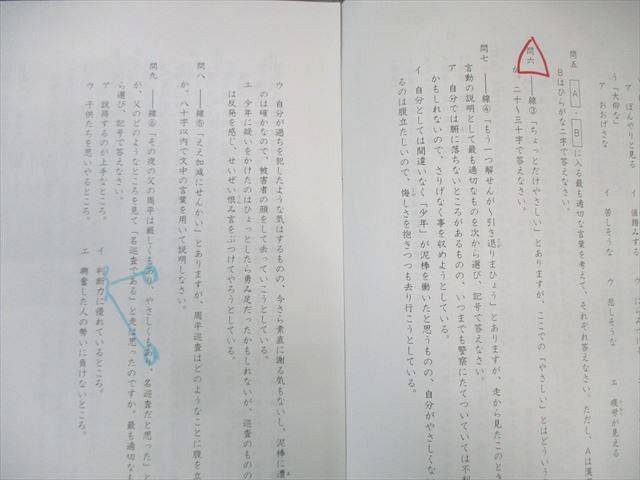 ア ぼんやりと見る イ 値踏みする
う「大仰な」
ア おおげさな イ 苦しそうな ウ 悲しそうな エ 疲労が見える
問五 A・Bに入る最も適切な言葉を考えて、それぞれ答えなさい。ただし、Aは漢
Bはひらがな二字で答えなさい。
問六 ――線③「ちょっとだけやさしい」とありますが、ここでの「やさしい」とはどういう
か。二十〜三十字で答えなさい。
問七 ――線④「もう一つ解せんが〜引き退りまひょう」とありますが、走から見たこのとき
言動の説明として最も適切なものを次から選び、記号で答えなさい。
ア 自分では腑に落ちないところがあるものの、いつまでも警察にたてついていては不利
かもしれないので、さりげなく事を収めようとしている。
イ 自分としては間違いなく「少年」が泥棒を働いたと思うものの、自分がやさしくな
るのは腹立たしいので、悔しさを抱きつつも去り行こうとしている。
ウ 自分が過ちを犯したような気はするものの、今さら素直に謝る気もないし、泥棒に遭
のは確かなので、被害者の顔をして去っていこうとしている。
エ 少年に疑いをかけたのはひょっとしたら勇み足だったかもしれないが、巡査のものの
は反発を感じ、せいぜい恨み言をぶつけてやろうとしている。
問八 ――線⑤「ええ加減にせんかい」とありますが、周平巡査はどのようなことに腹を立
か。八十字以内で文中の言葉を用いて説明しなさい。
問九 ――線⑥「その夜の父の周平は厳しくもあり、やさしくもあり、名巡査だと思った」と
が、父のどのようなところを見て「名巡査である」と走は思ったのですか。最も適切なも
ら選び、記号で答えなさい。
ア 説得するのが上手なところ。 イ 判断力に優れているところ。
ウ 子供たちを思いやるところ。 エ 興奮した人の勢いに負けないところ。